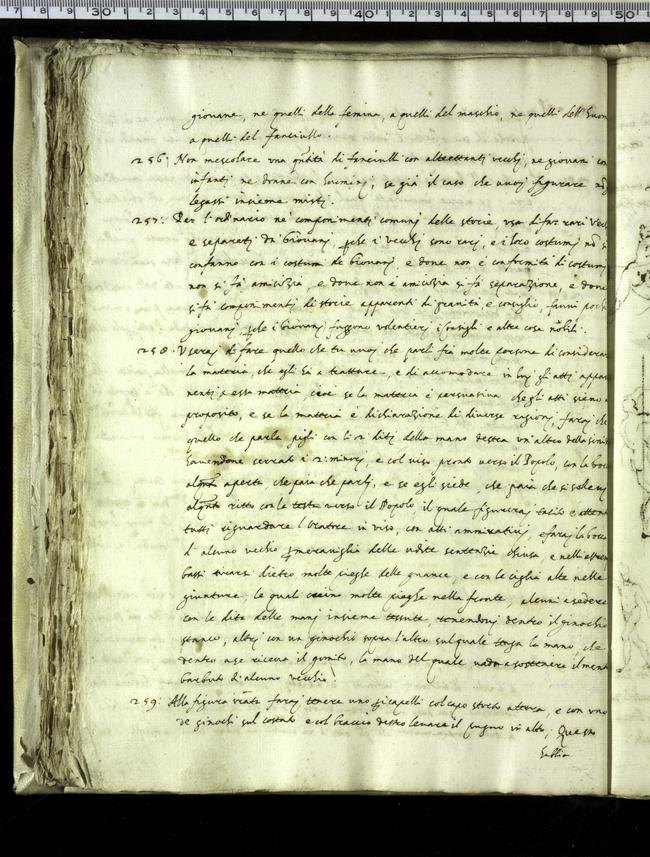 giovane, ne quelli della femina, a quelli del maschio, ne quelli dell' huom
a quelli del fanciullo.
256. Non mescolare una qñtità di fanciulli con altrettanti vecchj, ne giovani con
infanti, ne donne con huominj, se già il caso che vuoj figurare nõ gli
legassi insieme mistj.
257. Per l'ordinario ne componimenti comunj delle storie, usa di far rari Vecchj
e separati da' Giovanj, pche i Vecchj sono rarj, e i loro costumj nõ si
confanno con i costumi de Giovanj, e dove non è conformità di costumj
non si fà amicizia, e dove non è amicizia si fà separazione, e dove
si fà componimentj di storie apparenti di gravità e consiglio, fannj pochi
giovanj, pche i Giovanj fuggono volentierj i consigli e altre cose nobili.
258. Userai di fare quello che tu vuoj che parli frà molte persone di considerar
la materia, che egli hà a trattare, e di accomodare in luj gli attj appar
nentj a essa materia, cioè se la materia è persuasiva che gli atti sieno a
proposito, e se la materia è dichiarazione di diverse ragionj, faraj che
quello che parla pigli con li 2 diti della mano destra un' altro della sinistra
havendone serrati i 2: minorj, e col viso pronto verso il Popolo, con la bocca
alqnto aperta, che paia che parlj, e se egli siede, che paia che si sollevj
alqnto ritto con la testa verso il Popolo il quale figureraj tacito e attento
tutti riguardare l'Oratore in viso, con atti ammirativj, e faraj la bocca
d' alcuno vecchio p maraviglia delle udite sentenzie chiusa e nelli estremi
bassi tirarsi dietro molte pieghe delle guance, e con le ciglia alte nella
giuntura, le quali creino molte pieghe nella fronte, alcuni a sedere
con le dita delle manj insieme tessute, tenendovj dentro il ginocchio
stanco, altrj con un ginochio sopra l'altro sul quale tenga la mano, che
dentro a se riceva il gomito, la mano del quale vada a sostenere il mento
barbuto d' alcuno vecchio.
259. Alla figura irata faraj tenere uno p i capelli col capo storto a terra, e con uno
de ginochi sul costato e col braccio destro levare il pugno in alto; Questo
habbia